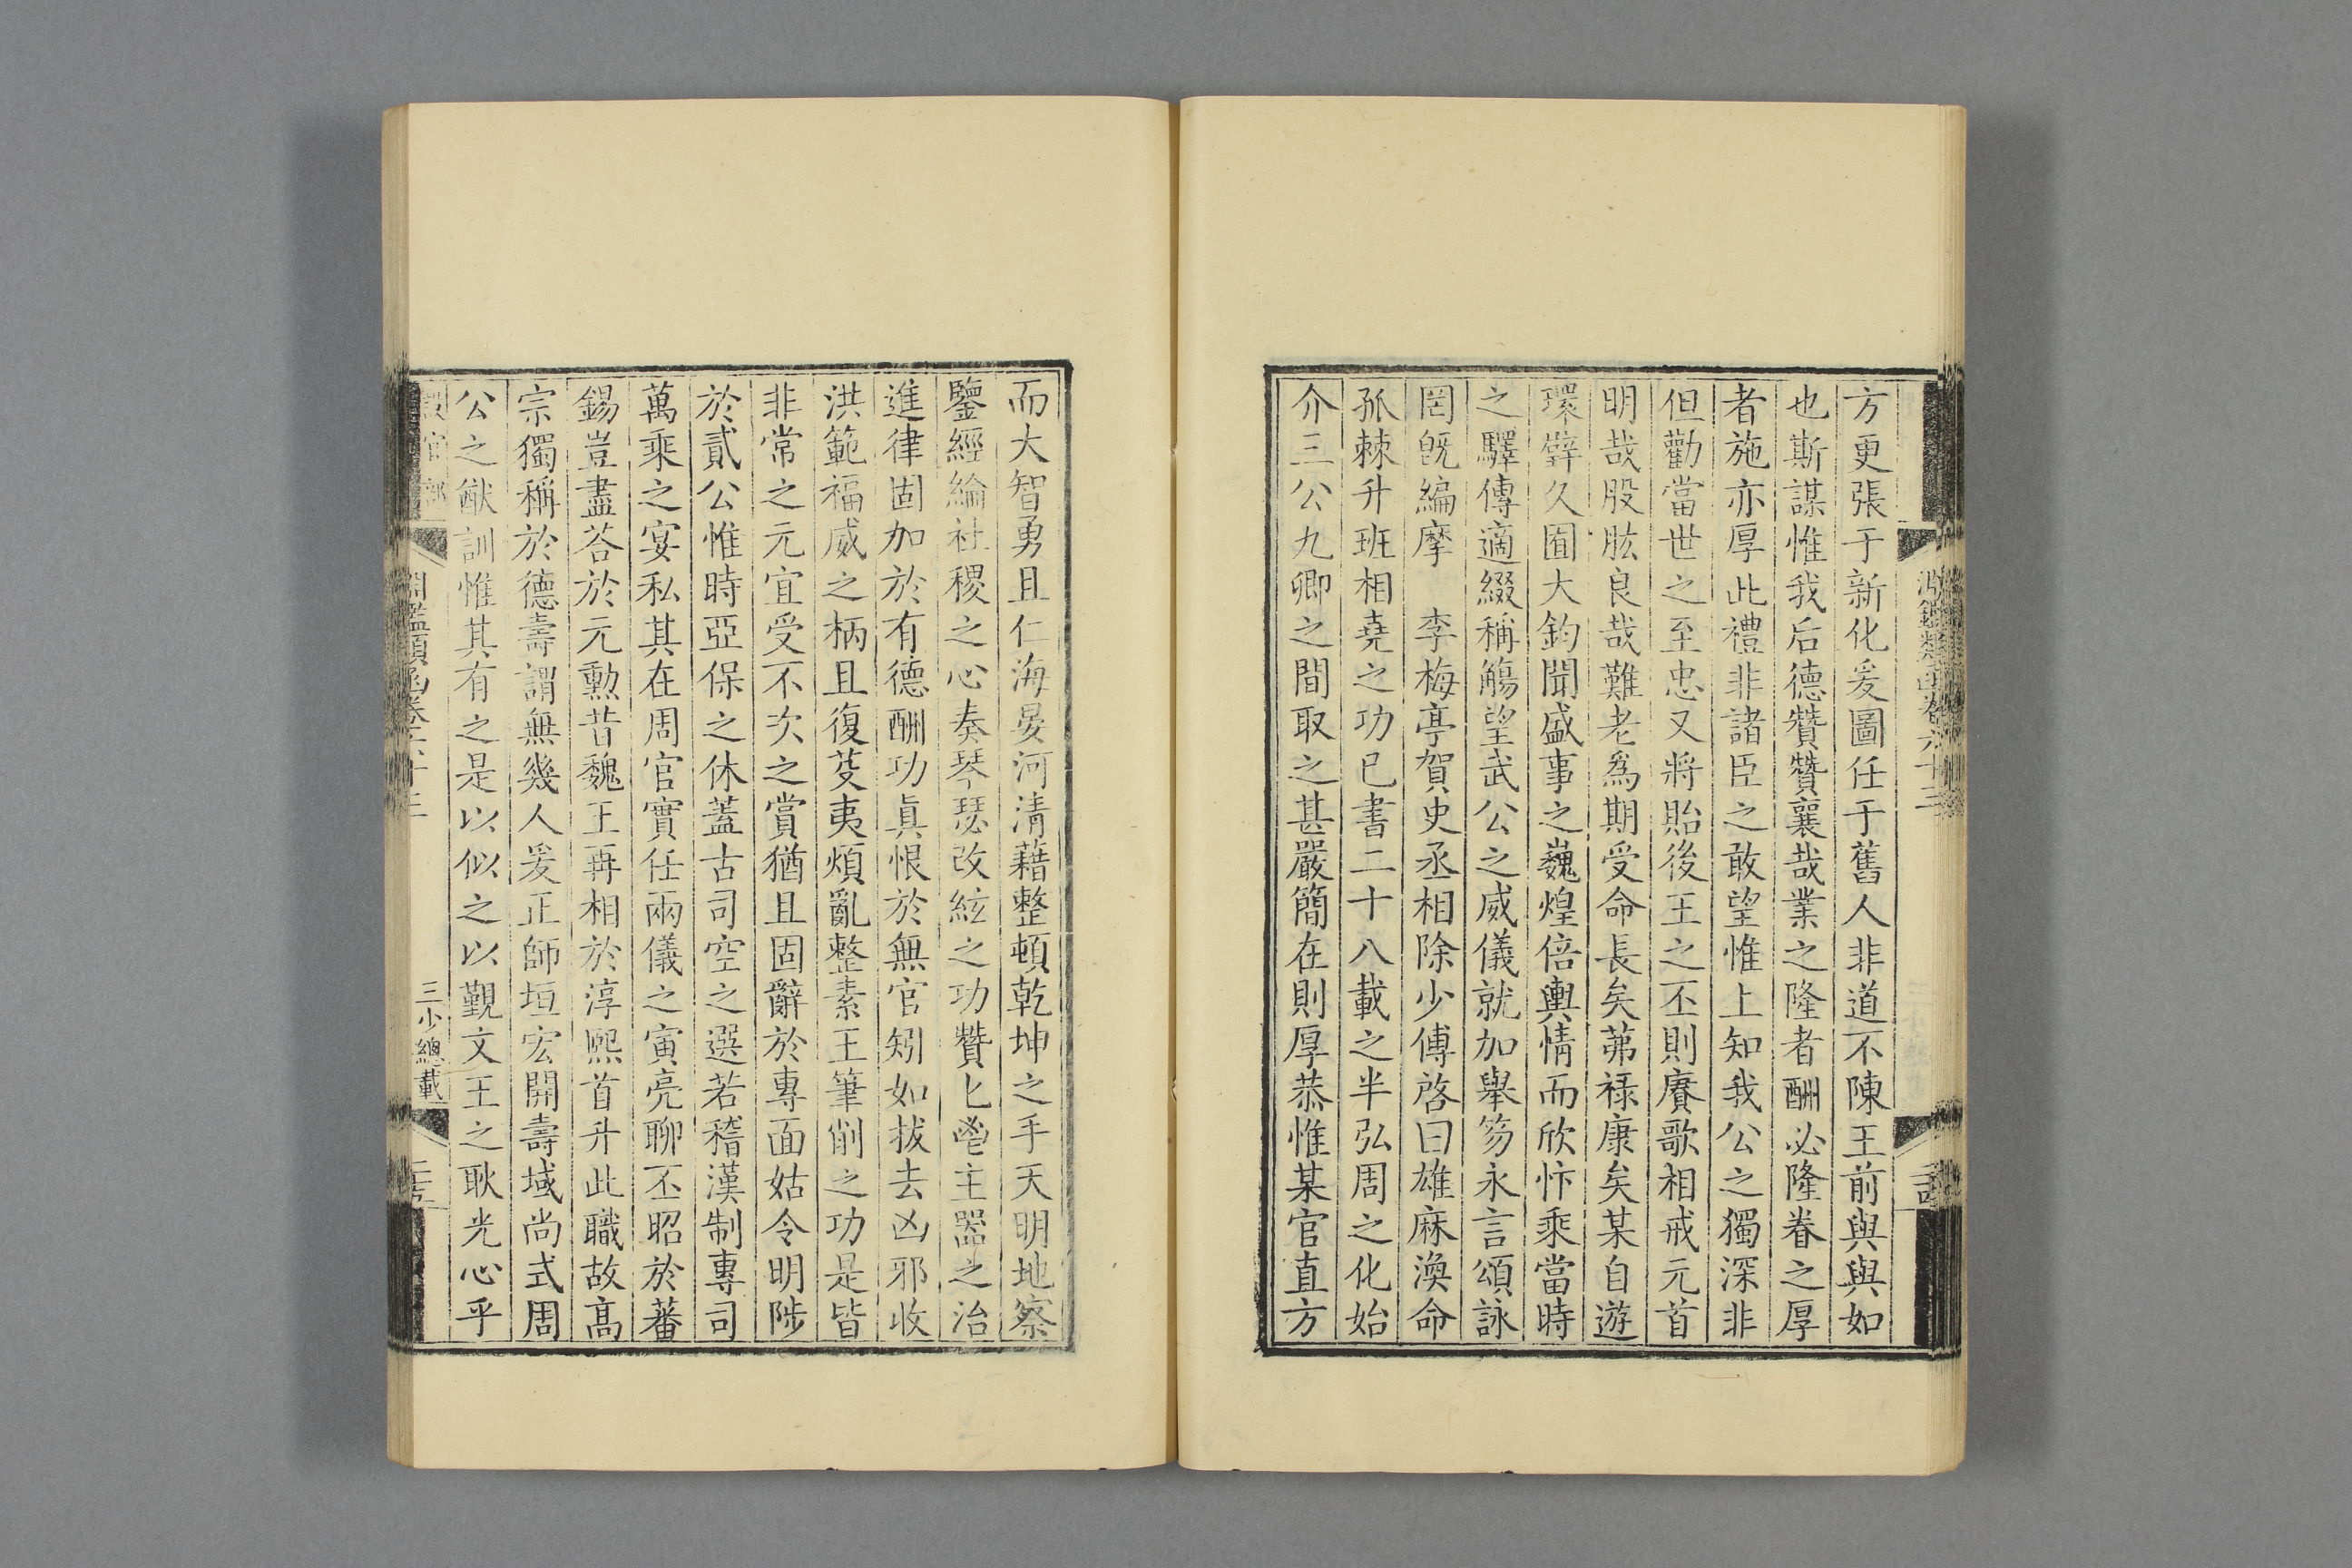 淵鑑類函卷六十三
方更張于新化爰圖任于舊人非道不陳王前與與如
也斯謀惟我后德贊贊襄哉業之隆者酬必隆眷之厚
者施亦厚此禮非諸臣之敢望惟上知我公之獨深非
但勸當世之至忠又將貽後王之丕則賡歌相戒元首
明哉股肱良哉難老爲期受命長矣茀祿康矣某自遊
環壁久囿大鈞聞盛事之巍煌倍輿情而欣忭乘當時
之驛傳適綴稱觴望武公之威儀就加舉笏永言頌詠
罔旣編摩　李梅亭賀史丞相除少傅啓曰雄麻渙命
孤棘升班相堯之功已書二十八載之半弘周之化始
介三公九卿之間取之甚嚴簡在則厚恭惟某官直方
而大智勇且仁海晏河清藉整頓乾坤之手天明地察
鑒經綸社稷之心奏琴瑟改絃之功贊匕鬯主器之治
進律固加於有德酬功眞恨於無官矧如拔去凶邪收
洪範福威之柄且復芟夷煩亂整素王筆削之功是皆
非常之元宜受不次之賞猶且固辭於專面姑令明陟
於貳公惟時亞保之休蓋古司空之選若稽漢制專司
萬乘之宴私其在周官實任兩儀之寅亮聊丕昭於蕃
錫豈盡荅於元勳昔魏王再相於淳熙首升此職故高
宗獨稱於德壽謂無幾人爰正師垣宏開壽域尚式周
公之猷訓惟其有之是以似之以觀文王之耿光心乎
設官部
淵鑑類函卷六十三
三少總載